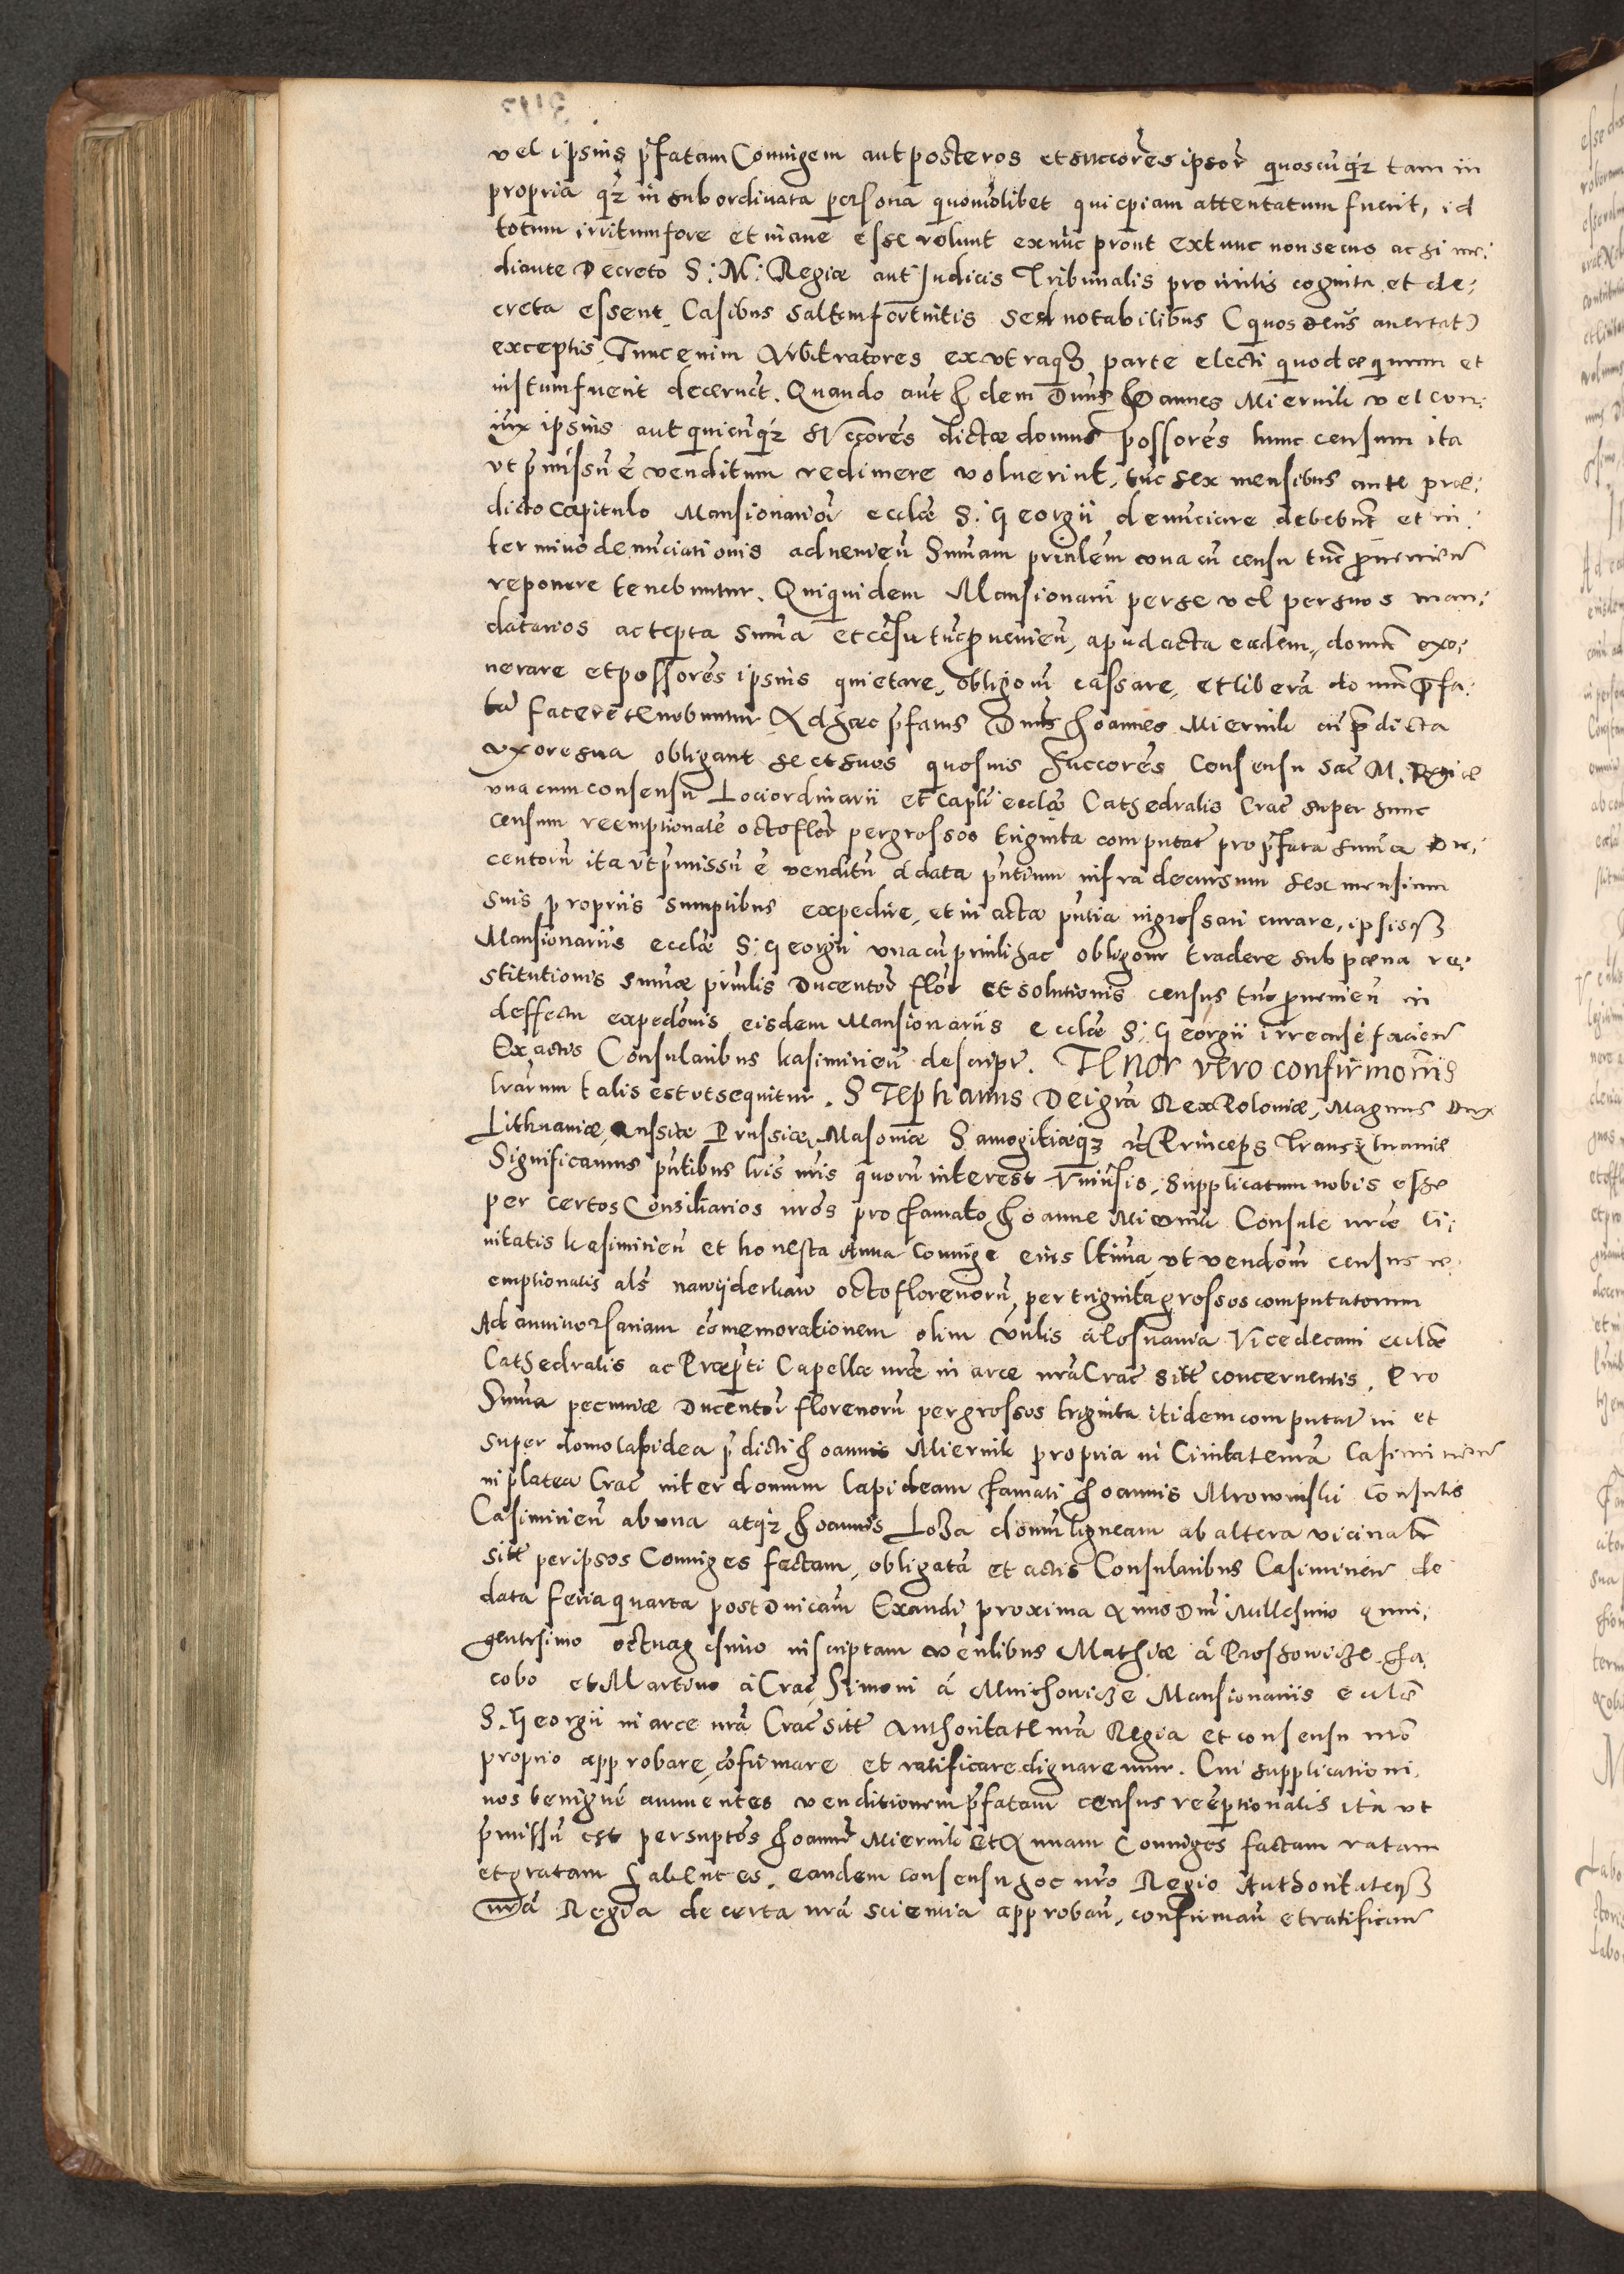 vel ipsius p̃fatam Coniugem aut posteros et succores ipsor quoscũqз tam in
propria qз in subordinata persona quomolibet quicpiam attentatum fuerit, id
totum irritum fore et inane esse volunt ex nũc prout ex tunc non secus ac si me:
diante Decreto S: M: Regiæ aut Iudicis Tribunalis pro iuitis cognita et de:
creta essent. Casibus saltem fortuitis sed notabilibus (quos Deus auertat)
exceptis, Tunc enim Arbitratores ex vtraqз parte electi quod æquum et
iustum fuerit decernẽt. Quando aut̃ Idem Dñus Ioannes Miernik vel con:
iux ipsius aut quicũqз succores dictæ domus possores hunc censum ita
vt p̃missũ ẽ venditum redimere voluerint, tũc sex mensibus ante præ:
dicto Capitulo Mansionarior ecclæ S: Georgii denũciare debebũt et in
termino denũciationis adueniẽ Sum̃am prin̄lem vna cũ censu tũc p̃uenien̄
reponere tenebuntur. Quiquidem Mansionarii per se vel per suos man:
datarios accepta sum̃a et cẽsu tũc p̃ueniẽ, apud acta eadem, domũ exo:
nerare et possores ipsius quietare, obligoũ cassare, et liberã domũ p̃fa:
tã facere tenebuntur. Ad hæc p̃fatus Dñus Ioannes Miernik cũ p̃dicta
vxore sua obligant se et suos quosuis succores Consensu Sac̃ M. Regiæ
vna cum consensu Loci ordinarii et capli ecclæ Cathedralis Crac̃ super hunc
censum reemptionale octo flor per grossos triginta computat̃ pro p̃fata sum̃a Du:
centorũ ita vt p̃missũ ẽ venditũ a data p̃ntium infra decursum sex mensium
suis propriis sumptibus expedire, et in acta p̃ntia ingrossari curare, ipsisqз
Mansionariis ecclæ S: Georgii vna cũ priuili hac obligoñ tradere sub pœna re:
stitutionis sum̃æ prin̄lis Ducentor flor et solutionis census tũc p̃ueniẽ in
deffectu expedoñis eisdem Mansionariis ecclæ S: Georgii irrecusẽ facien̄
Ex actis Consularibus Kasimirieñ descript̃. Tenor vero confirmoñis
lrarum talis est vt sequitur. Stephanus Dei gra Rex Poloniæ, Magnus Dux
Lithuaniæ, Russiæ Prussiæ, Masouiæ Samogitiæqз &c Princeps Transsyluaniæ
Significamus p̃ntibus lris nris quorũ interest Vniũsis, Supplicatum nobis esse
per certos Consiliarios nros pro famato Ioanne Miernik Consule nræ Ci:
uitatis Kasimirieñ et honesta Anna Coniuge eius ltima, vt vendoñ census re:
emptionalis als nawyderkaw octo florenorũ, per triginta grossos computatorum
Ad anniuersariam cõmemorationem olim Vñlis a Posnania Vicedecani ecclæ
Cathedralis ac Præp̃ti Capellæ nræ in arce nra Crac̃ sitæ concernentis. Pro
Sum̃a pecuniæ Ducentor florenorũ per grossos triginta itidem computat̃ in et
super domo lapidea p̃dicti Ioannis Miernik propria in Ciuitate nra Casimirien̄
in platea Crac̃ inter domum lapideam famati Ioannis Mrowinski Consulis
Casimirieñ ab vna atqз Ioannis Loza domũ ligneam ab altera vicinat̃
sitt̃ per ipsos Coniuges factam, obligatã et actis Consularibus Casimirieñ de
data feria quarta post Dnicam Exaudi proxima Anno Dni Millesimo quin:
gentesimo octuagesimo inscriptam vẽnlibus Mathiæ à Proszowicze Ia:
cobo et Martino à Crac̃, Simoni á Mnichowicze Mansionariis ecclæ
S. Georgii in arce nra Crac̃ sitt̃ authoritate nra Regia et consensu nro
proprio approbare, cõfirmare et ratificare dignaremur. Cui supplicationi
nos benigné annuentes venditionem p̃fatam census reẽptionalis ita vt
p̃missũ est per supt̃os Ioannẽ Miernik et Annam Coniuges factam ratam
et gratam habentes, eandem consensu hoc nro Regio Authoritateqз
nra Regia de certa nra scientia approbañ, confirmañ et ratificañ